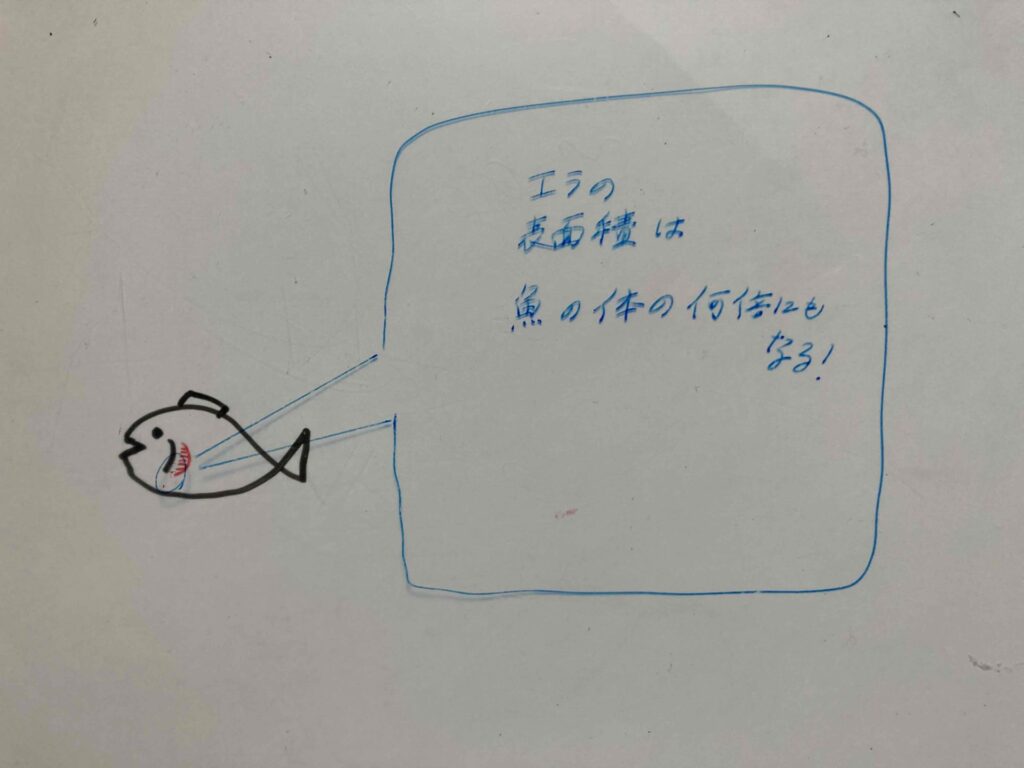 エラの
表面積は
魚の体の何倍にも
なる!